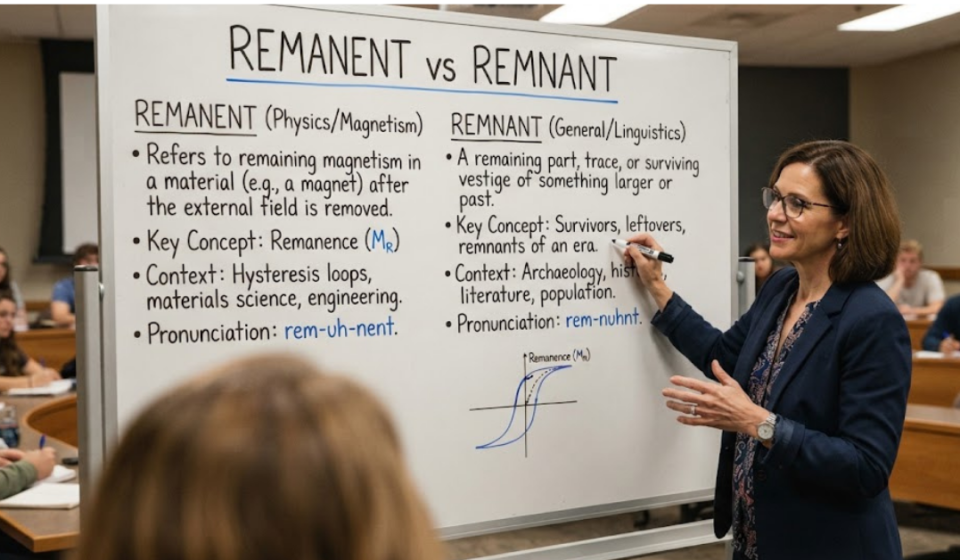 REMANENT vs REMNANT
REMANENT (Physics/Magnetism)
• Refers to remaining magnetism in
a material (e.g., a magnet) after
the external field is removed.
• Key Concept: Remanence (M_R)
• Context: Hysteresis loops,
materials science, engineering.
• Pronunciation: rem-uh-nent.
REMNANT (General/Linguistics)
• A remaining part, trace, or surviving
vestige of something larger or
past.
• Key Concept: Survivors, leftovers,
remnants of an era.
• Context: Archaeology,
literature, population.
• Pronunciation: rem-nuhnt.
Remanence (M_R)